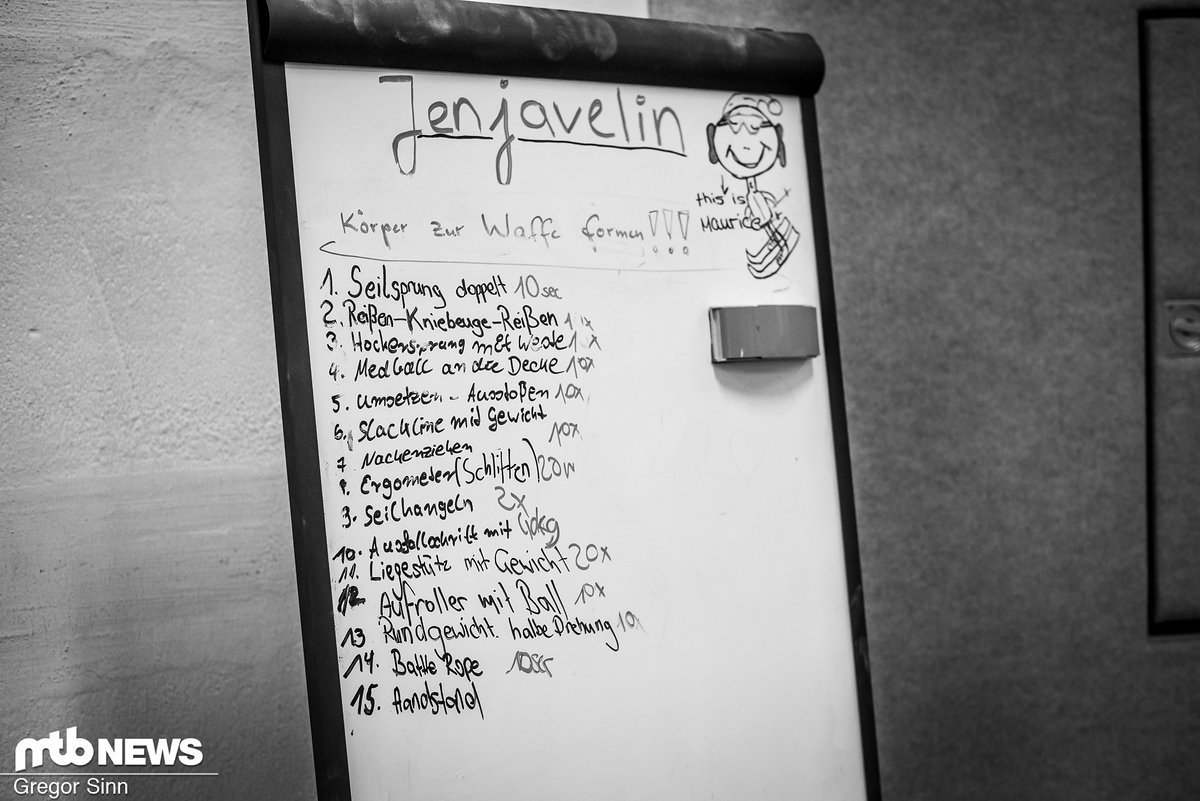 Jenjavelin
this is
Maurice
Körper zur Waffe formen!!!
1. Seilsprung doppelt 10sec
2. Reißen-Kniebeuge-Reißen
3. Hockersprung mit Weste
4. Medball an die Decke 10x
5. umsetzen - Ausstoßen 10x
6. Slackline mit Gewicht
10x
7 Nackenziehen
8. Ergometer (Schlitten) 20
9. Seilhangeln 2x
10. Ausfallschritt mit 40kg
11. Liegestütz mit Gewicht 20x
12 Aufroller mit Ball 10x
13 Rundgewicht halbe Drehung 10x
14. Battle Rope
15. Handstand
mtb NEWS
Gregor Sinn